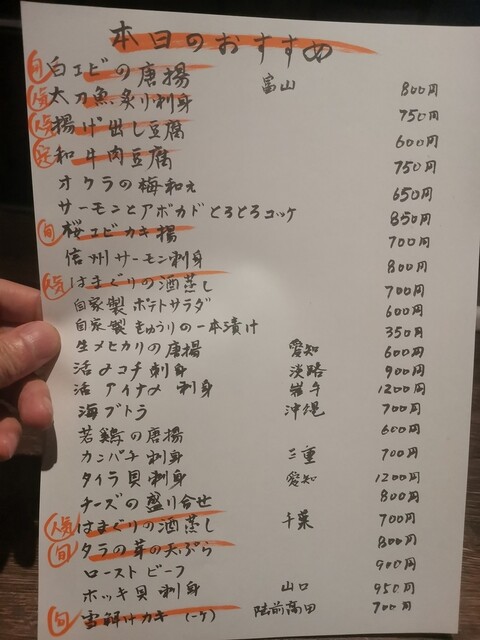 本日のおすすめ
旬 白エビの唐揚 富山 800円
人気 太刀魚炙り刺身 750円
人気 揚げ出し豆腐 600円
定 和牛肉豆腐 750円
オクラの梅和え 650円
サーモンとアボカドとろとろユッケ 850円
旬 桜エビカキ揚 700円
信州サーモン刺身 800円
人気 はまぐりの酒蒸し 700円
自家製 ポテトサラダ 600円
自家製 きゅうりの一本漬け 350円
生メヒカリの唐揚 愛知 600円
活メゴチ刺身 淡路 900円
活アイナメ 刺身 岩手 1200円
海ブドウ 沖縄 700円
若鶏の唐揚 600円
カンパチ刺身 三重 700円
タイラ貝刺身 愛知 1200円
チーズの盛り合せ 800円
人気 はまぐりの酒蒸し 千葉 700円
旬 タラの芽の天ぷら 800円
ローストビーフ 900円
ホッキ貝刺身 山口 950円
旬 雪解けカキ (一ヶ) 陸前高田 700円